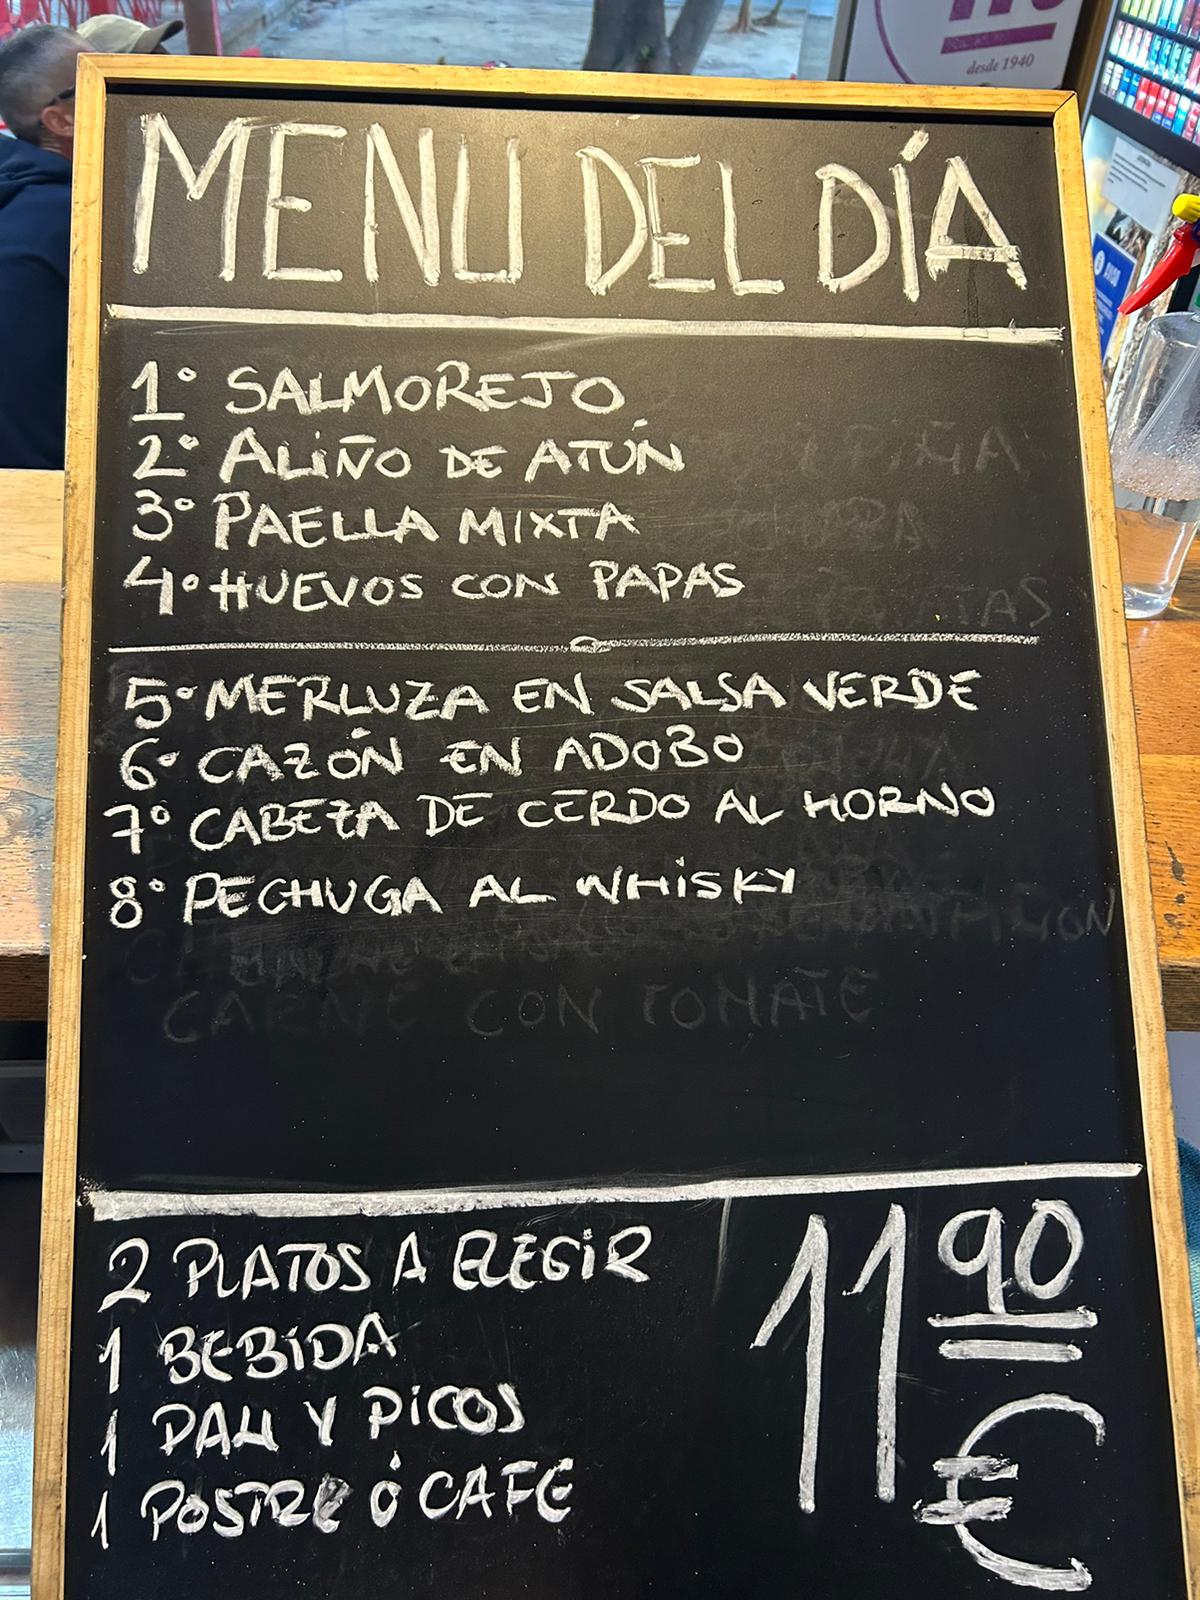 desde 1940
MENU DEL DÍA
1º SALMOREJO
2º ALIÑO DE ATÚN
3º PAELLA MIXTA
4º HUEVOS CON PAPAS
5º MERLUZA EN SALSA VERDE
6º CAZÓN EN ADOBO
7º CABEZA DE CERDO AL HORNO
8º PECHUGA AL WHISKY
CARNE CON TOMATE
2 PLATOS A ELEGIR
1 BEBIDA
1 PAN Y PICOS
1 POSTRE Ó CAFE
11 90 €